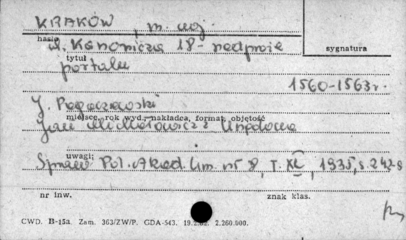 KRAKÓW, m. woj.
hasło
ul. Kanonicza 18 - nadproże
sygnatura
tytuł
portalu
1560-1563 r.
J. Pagaczewski
miejsce, rok wyd., nakładca, format, objętość
Jan Michałowicz z Urzędowa
uwagi:
Spraw. Pol. Akad. Um. nr 8, T. XL, 1935, s. 242-8
nr inw.
znak klas.
CWD. B-15a. Zam. 363/ZW/P. GDA-543. 2.260.000.